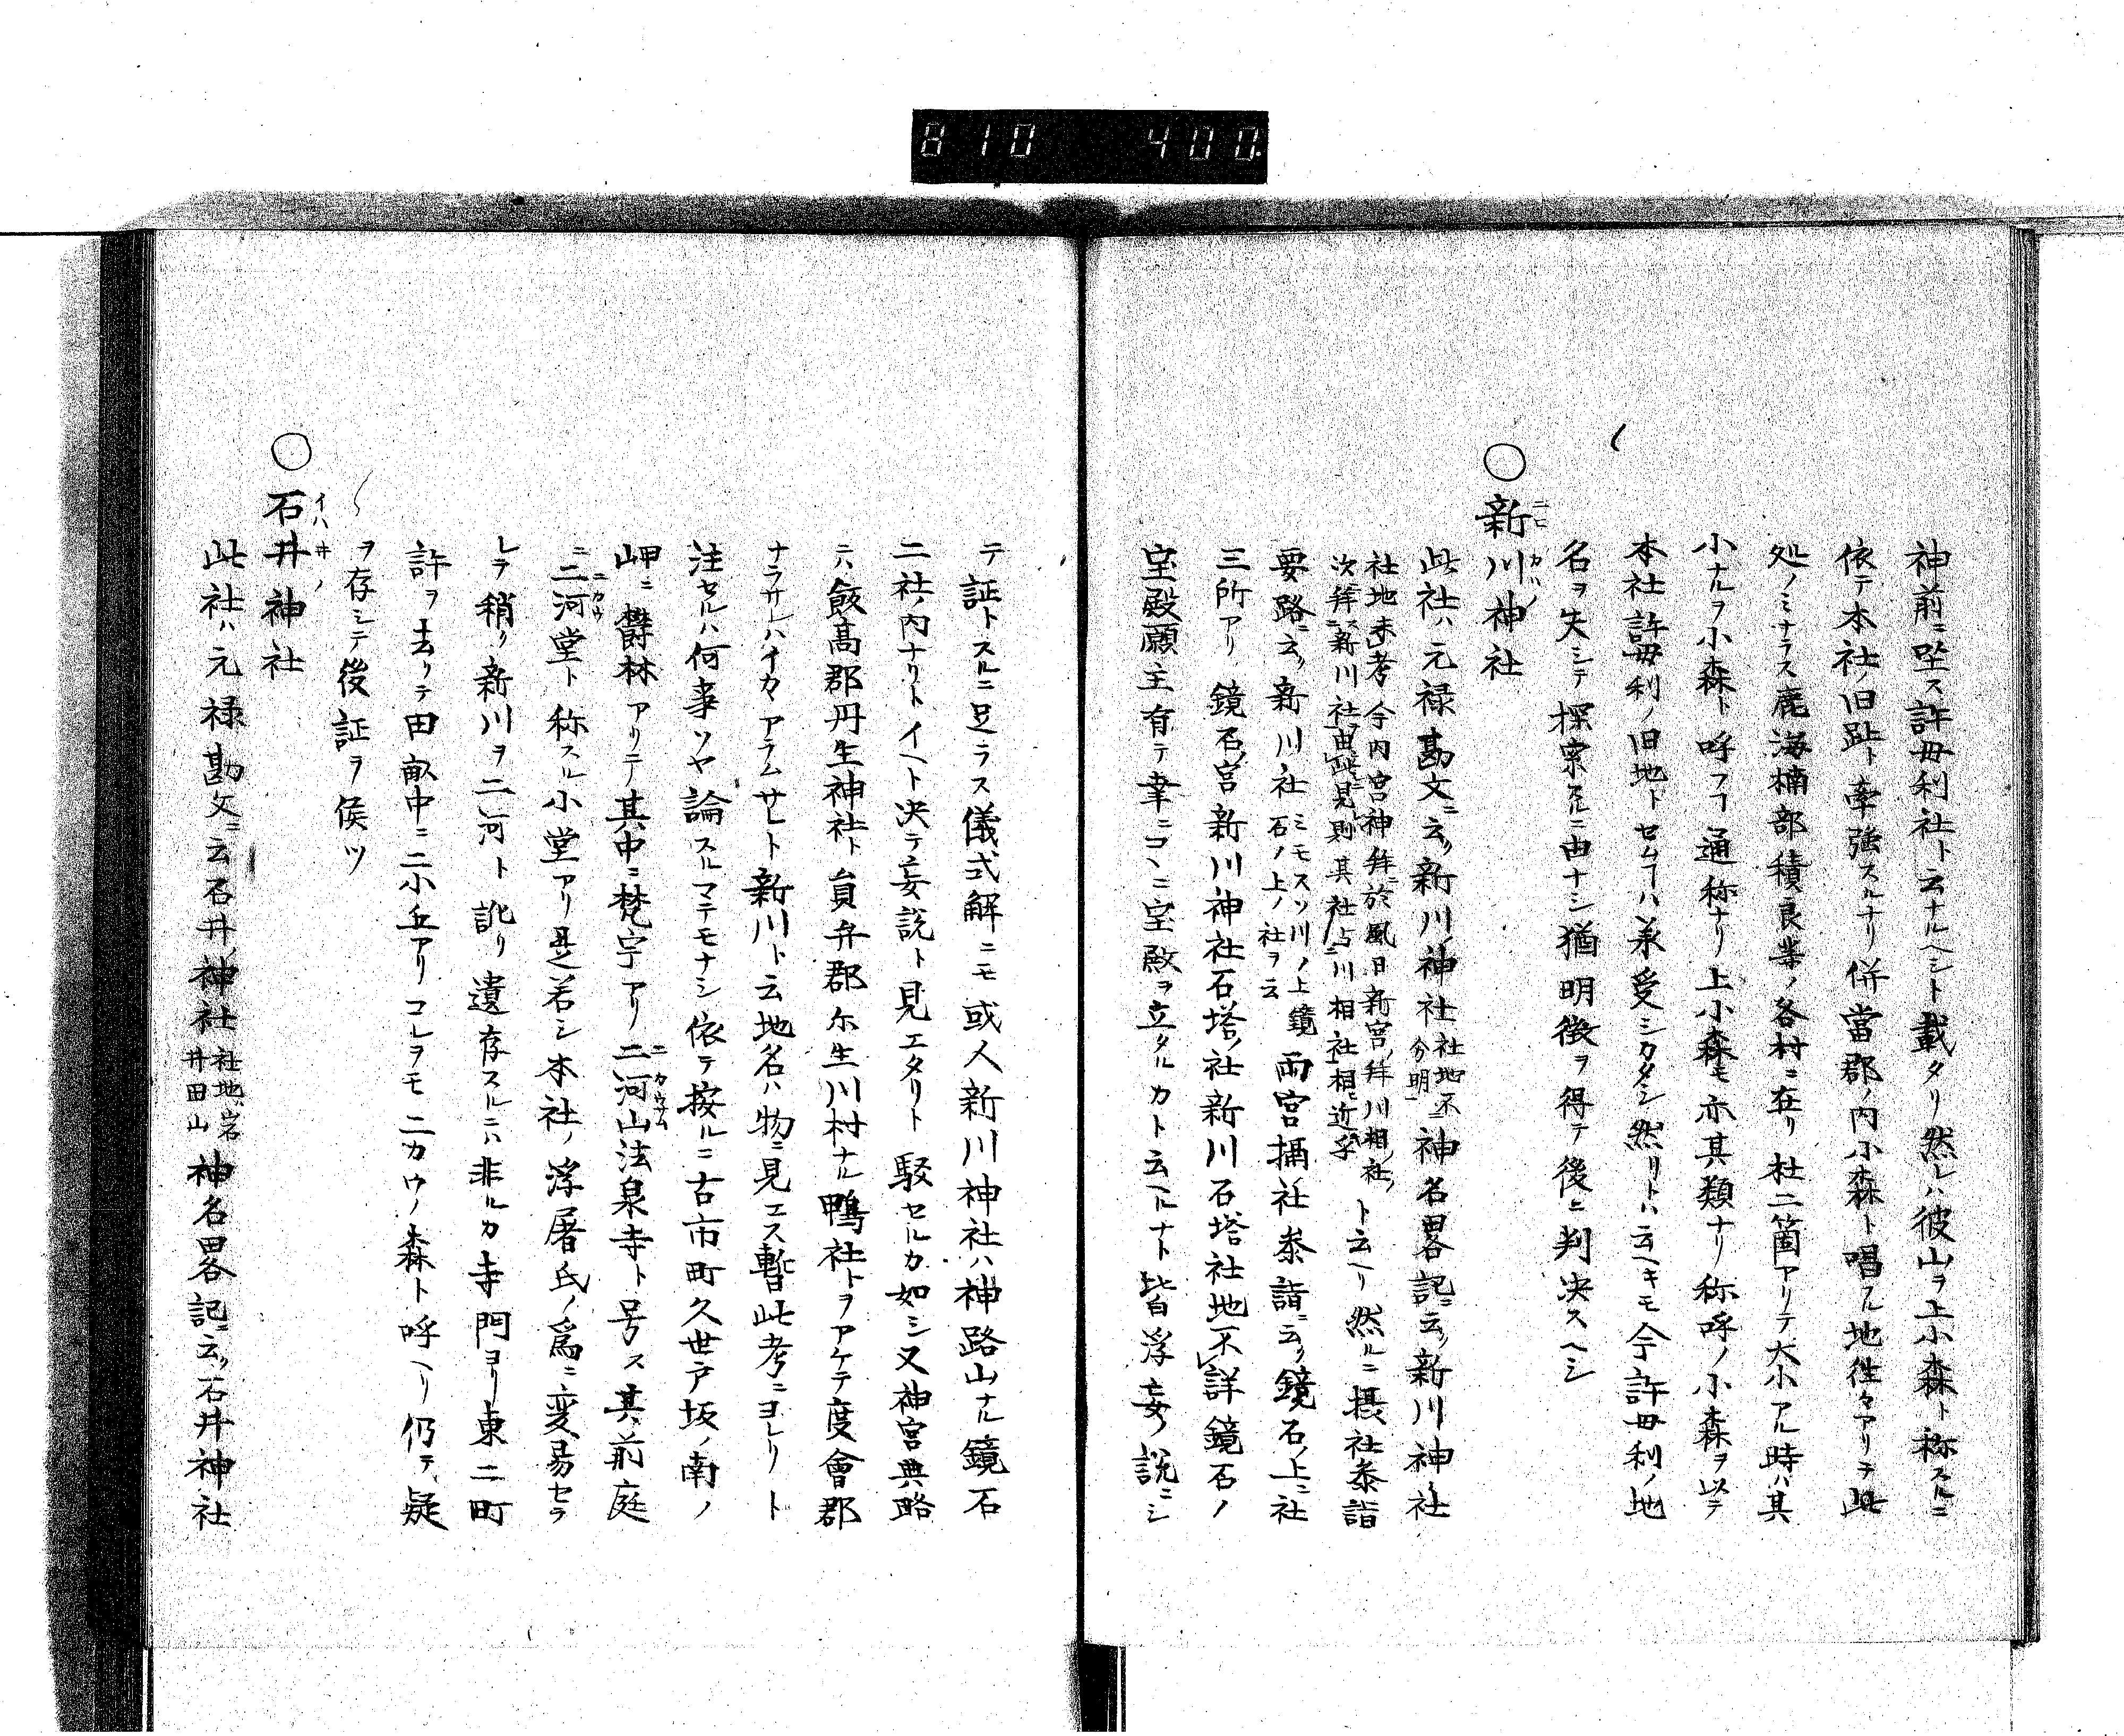 810 400.
神前ニ坐ス許毋利社ト云ナルヘシト載タリ然レハ彼山ヲ上小森ト称スルニ
依テ本社ノ旧趾ト牽強スルナリ併當郡ノ内小森ト唱フル地徃々アリテ此
処ノミナラス鹿海楠部積良等ノ各村ニ在リ社二箇アリテ大小アル時ハ其
小ナルヲ小森ト呼フヿ通称ナリ上小森モ亦其類ナリ称呼ノ小森ヲ以テ
本社許毋利ノ旧地トセムヿハ承受シカタシ然リトハ云ヘキモ今許毋利ノ地
名ヲ失シテ探索スルニ由ナシ猶明徴ヲ得テ後ニ判决スヘシ
○新川神社
ニヒカハノ
此社ハ元禄勘文ニ云ク新川ノ神社社地不分明神名畧記ニ云ク新川神社
社地未考今内宮神拜ニ於風日新宮ノ拜川相ノ社ノ
次ニ拜新川社由此見則其社占川相社相近乎ト云ヘリ然ルニ摂社叅詣
要路ニ云ク新川社ミモスソ川ノ上鏡石ノ上ノ社ヲ云両宮攝社叅詣ニ云ク鏡石ノ上ニ社
三所アリ鏡石ノ宮新川神社石塔ノ社新川石塔社地不詳鏡石ノ
宝殿願主有テ幸ニコヽニ宝殿ヲ立タルカト云ヘルナト皆浮妄ノ説ニシ
テ証トスルニ足ラス儀式解ニモ或人新川神社ハ神路山ナル鏡石
二社ノ内ナリトイヘト决テ妄説ト見エタリト駁セルカ如シ又神宮典略
ニハ飯高郡丹生神社ト員弁郡尓生川村ナル鴨社トヲアケテ度會郡
ナラサルハイカヽアラムサレト新川ト云地名ハ物ニ見エス暫此考ニヨレリト
注セルハ何事ソヤ論スルマテモナシ依テ按ルニ古市町久世戸坂ノ南ノ
岬ニ欝林アリテ其中ニ梵宇アリ二河山法泉寺ト号ス其前庭
ニカウサム
ニ二河堂ト称スル小堂アリ是若シ本社ノ浮屠氏ノ爲ニ変易セラ
ニカウ
レテ稍ク新川ヲ二河ト訛リ遺存スルニハ非ルカ寺門ヨリ東二町
許ヲ去リテ田畝中ニ二小丘アリコレヲモ二カウノ森ト呼ヘリ仍テ疑
ヲ存シテ後証ヲ俟ツ
○石井神社
イハ井ノ
此社ハ元禄勘文ニ云石井ノ神社社地ハ岩井田山神名畧記ニ云ク石井神社